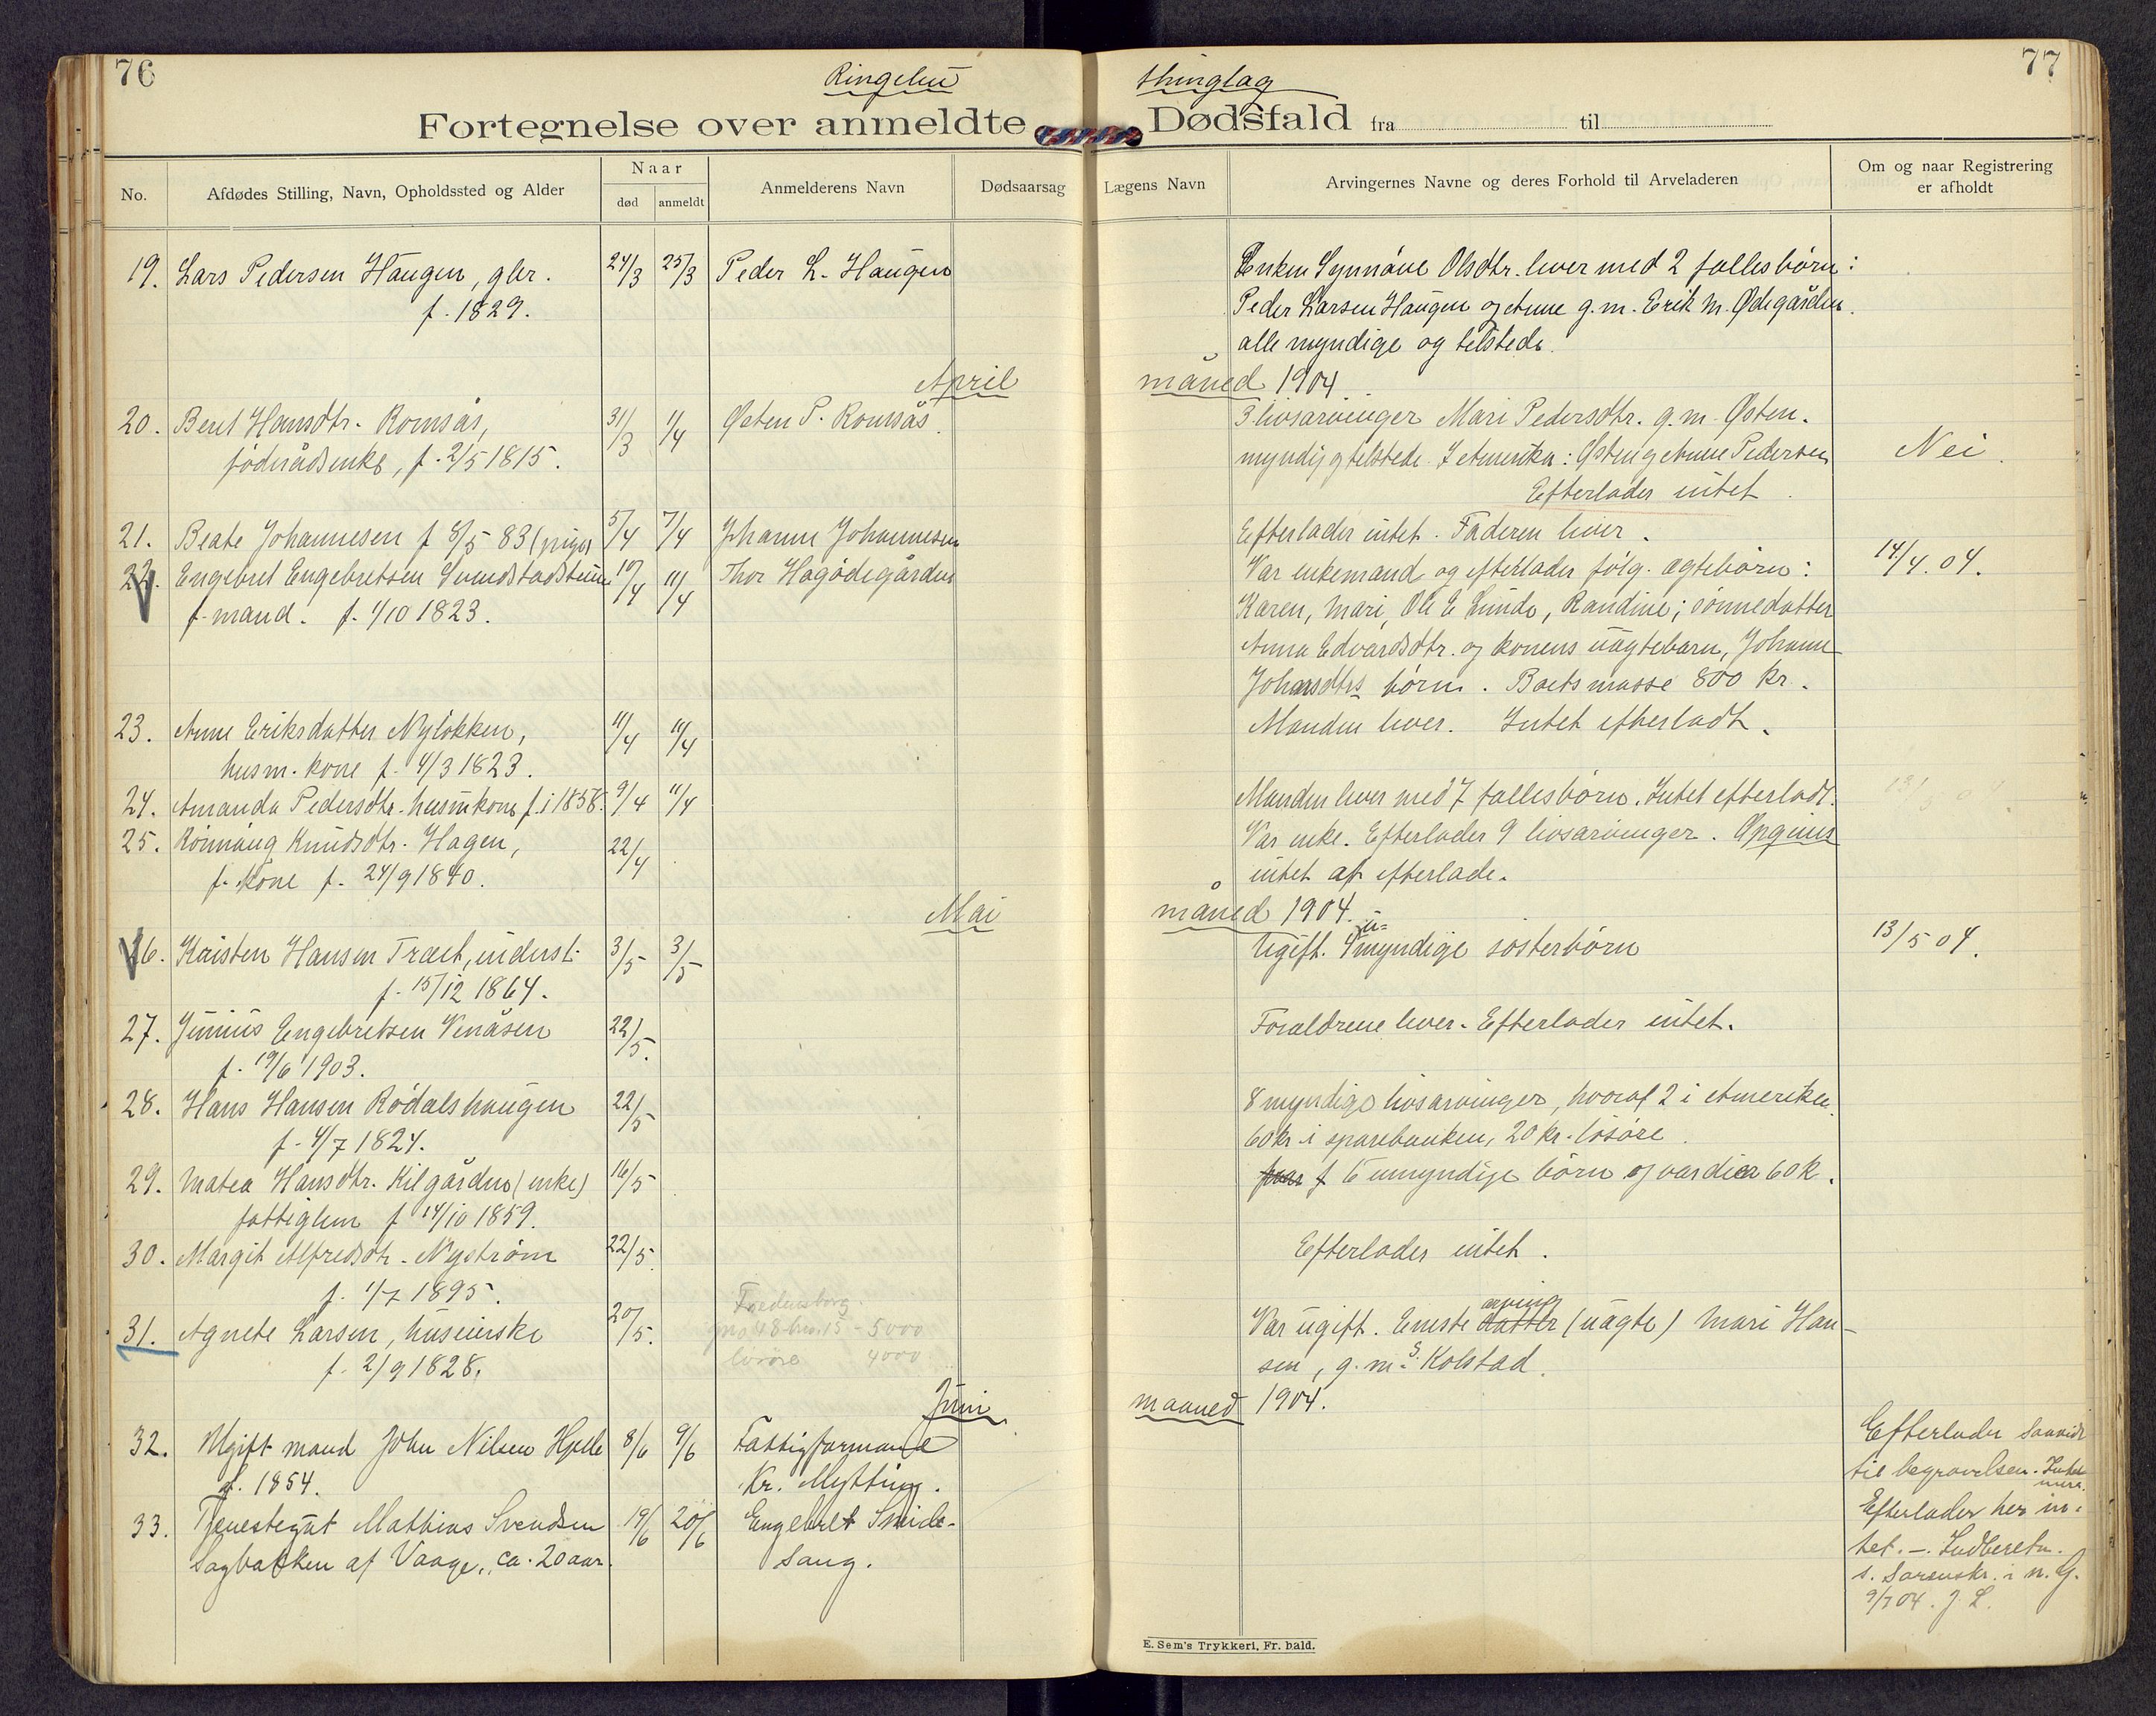 76
77
Ringebu thinglag
Fortegnelse over anmeldte Dødsfald fra til
No.
Afdødes Stilling, Navn, Opholdssted og Alder
Naar
død
anmeldt
Anmelderens Navn
Dødsaarsag
Lægens Navn
Arvingernes Navne og deres Forhold til Arveladeren
Om og naar Registrering
er afholdt
19. Lars Pedersen Haugen, gbr. 24/3 25/3 Peder L. Haugen Enken Synnøve Olsdtr. lever med 2 fællesbørn:
f. 1829. Peder Larsen Haugen og Anne g.m. Erik M. Ødegården.
alle myndige og tilstede.
April måned 1904
20. Berit Hansdtr. Romsås, 31/3 1/4 Østen P. Romsås. 3 livsarvinger Mari Pedersdtr. g.m. Østen.
föderådsenke, f. 2/5 1815. myndig og tilstede. I Amerika: Østen og Anne Pedersen Nei.
Efterlader intet.
21. Beate Johannesen f 8/5 83 (pige) 5/4 7/4 Johanne Johannesen Efterlader intet. Faderen lever.
22. Engebret Engebretsen 10/4 11/4 Thor Hagødegården Var enkemand og efterlader følg. ægtebørn: 14/4.04.
f. mand. f. 1/10 1823. Karen, Mari, Ole E Lunde, Randine; sønnedatter
Anna Edvardsdtr. og konens uægtebarn, Johanne
Johansdtrs børn. Boets masse 800 kr.
23. Anne Eriksdatter Nyløkken, 11/4 11/4 Manden lever. Intet efterladt.
husm. kone f. 4/3 1823.
24. Amanda Pedersdtr. husmkone f. i 1858. 9/4 11/4 Manden lever med 7 fællesbørn. Intet efterladt.
25. Rønnaug Knudsdtr. Hagen, 22/4 Var enke. Efterlader 9 livsarvinger. Opgives
f. kone f. 24/9 1840. intet at efterlade.
Mai måned 1904.
26. Kristen Hansen Træet, inderst. 3/5 3/5 Ugift. u= myndige søsterbørn 13/5 04.
f. 15/12 1864.
27. Junius Engebretsen Venåsen 22/5. Forældrene lever. Efterlader intet.
f. 19/6 1903.
28. Hans Hansen Rødalshaugen 22/5 8 myndige livsarvinger, hvoraf 2 i Amerika.
f. 4/7 1824. 60 kr i sparebanken, 20 kr. løsøre.
29. Matea Hansdtr. Kilgården (enke) 16/5 6 umyndige børn og værdi ca 60 k.
fattiglem f 14/10 1859.
30. Margit Alfredsdtr. Nystrøm 22/5. Efterlader intet.
f. 1/7 1895.
31. Agnete Larsen, huseierske 20/5. Fredensborg. Var ugift. Eneste datter arving (uægte) Mari Han-
f. 2/9 1828. gno 48 bno. 15 - 5000 sen, g. m. S. Kolstad.
løsøre 4000
Juni maaned 1904.
32. Ugift mand John Nilsen Hjelle 8/6 9/6 Fattigformand Efterlader saavidt
f. 1854. Kr. Mytting. til begravelsen. Intet
mere.
33. Tjenestegut Mathias Svendsen 19/6 20/6 Engebret Smide- Efterlader her in-
Sagbakken af Vaage, ca. 20 aar. sang. tet. —. Indberetn.
s. Sorenskr. i n. G.
9/7 04. J. L.
E. Sem's Trykkeri, Fr. hald.